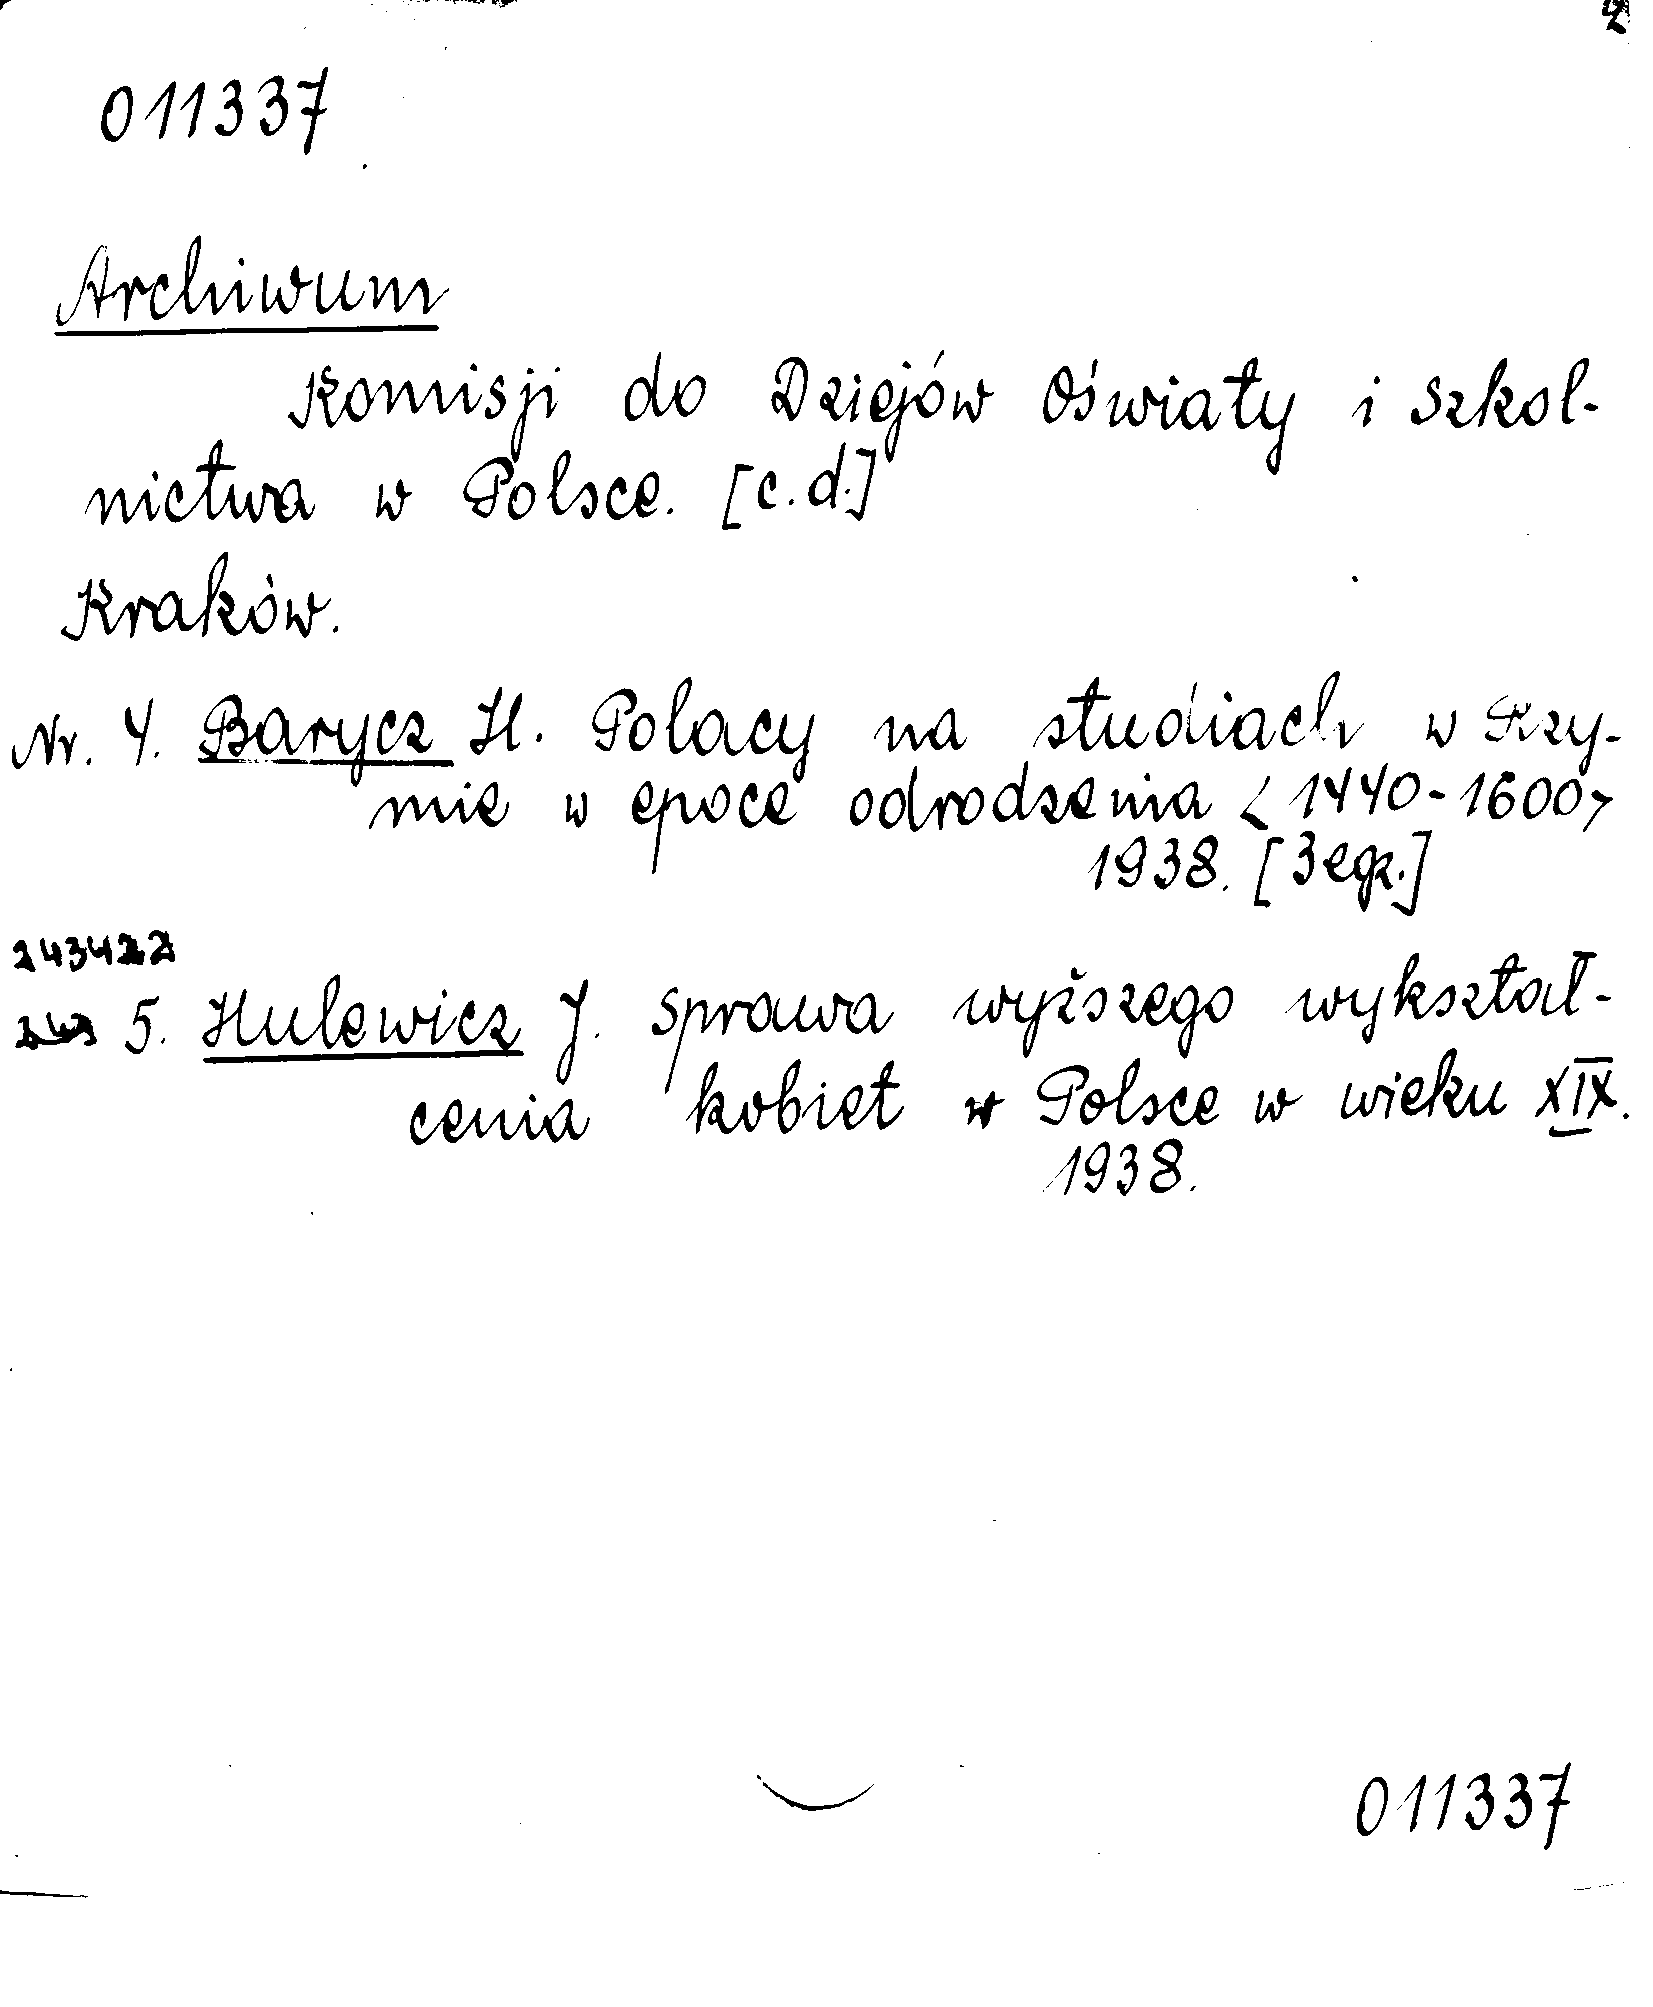 2
011337
Archiwum
Komisji do Dziejów Oświaty i Szkol-
nictwa w Polsce. [c.d.]
Kraków.
Nr. 4. Barycz H. Polacy na studiach w Rzy-
mie w epoce odrodzenia <1440-1600>
1938. [3 egz.]
243422
5. Hulewicz J. Sprawa wyższego wykształ-
cenia kobiet w Polsce w wieku XIX.
1938.
011337